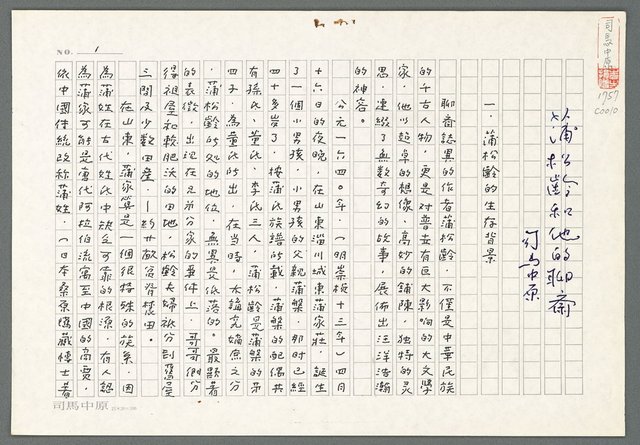 NO. 1
司馬中原
1757
C0010
蒲松齡和他的聊齋
司馬中原
一.蒲松齡的生存背景
聊齋誌異的作者蒲松齡.不僅是中華民族
的千古人物.更是對普世有巨大影响的大文學
家.他以超卓的想像.高妙的舖陳.獨特的灵
思.連綴了無數奇幻的故事.展佈出汪洋浩瀚
的神容。
公元一六四○年.(明崇楨十三年)四月
十六日的夜晚.在山東淄川城東蒲家莊.誕生
了一個小男孩.小男孩的父親蒲槃.那时已經
四十多歲了.據蒲氏族譜的載.蒲槃的配偶共
有孫氏、董氏、李氏三人.蒲松齡是蒲槃的第
四子.為董氏的出.在當時.大編究嫡庶之分
.蒲松齡的处的地位.無異是低落的.最顯著
的表徵.出現在兄弟分家的事件上.哥哥們分
得祖屋和較肥沃的田地.松齡夫婦祇分到舊屋
三間及少數田產.
在山東.蒲家算是一個很特殊的族系.因
為蒲姓在古代姓氏中缺乏可靠的根源.有人認
為蒲家可能是唐代阿拉伯流寓至中國的商賈.
依中國傳統改称蒲姓.(日本桑原隲藏博士著
司馬中原